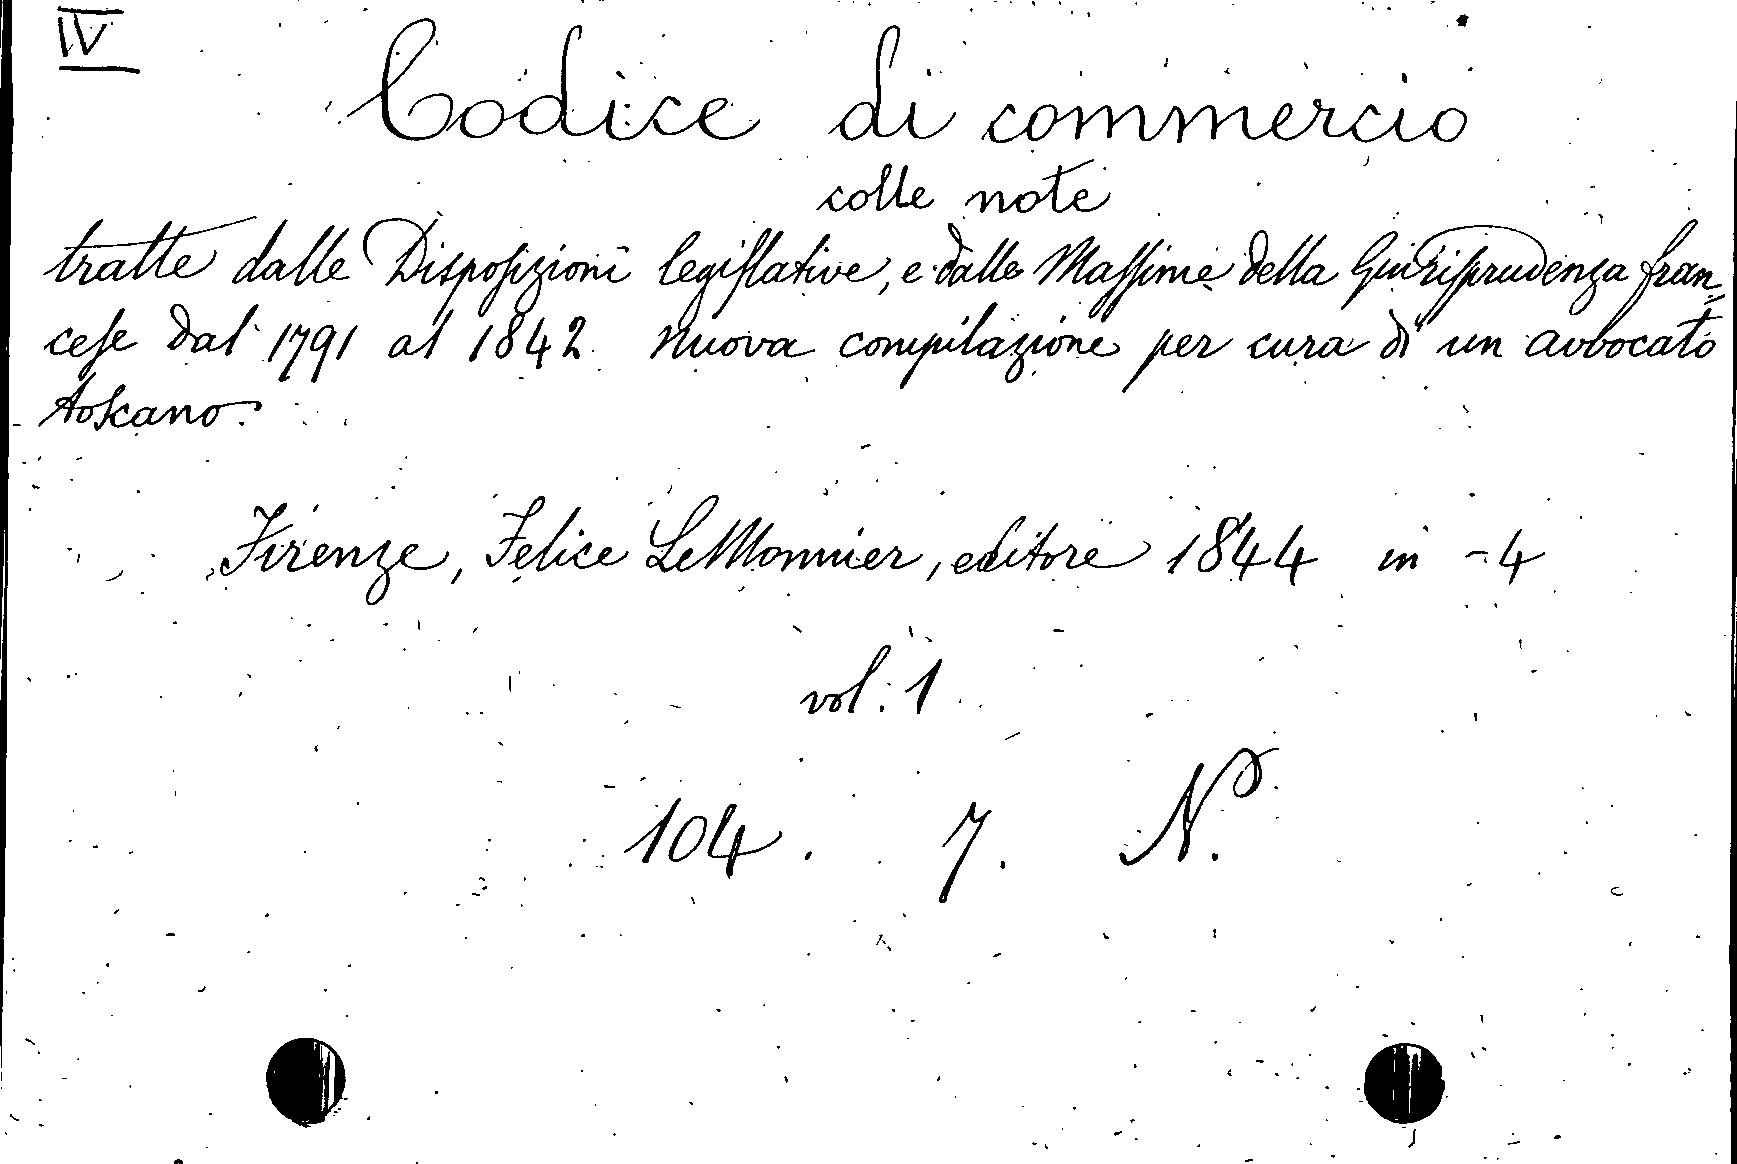 IV
Codice di commercio
colle note
tratte dalle Disposizioni legislative, e dalle Massime della Giurisprudenza fran=
cese dal 1791 al 1842 nuova compilazione per cura di un avvocato
toscano.
Firenze, Felice LeMonnier, editore 1844 in -4
vol. 1
104. 7. N.